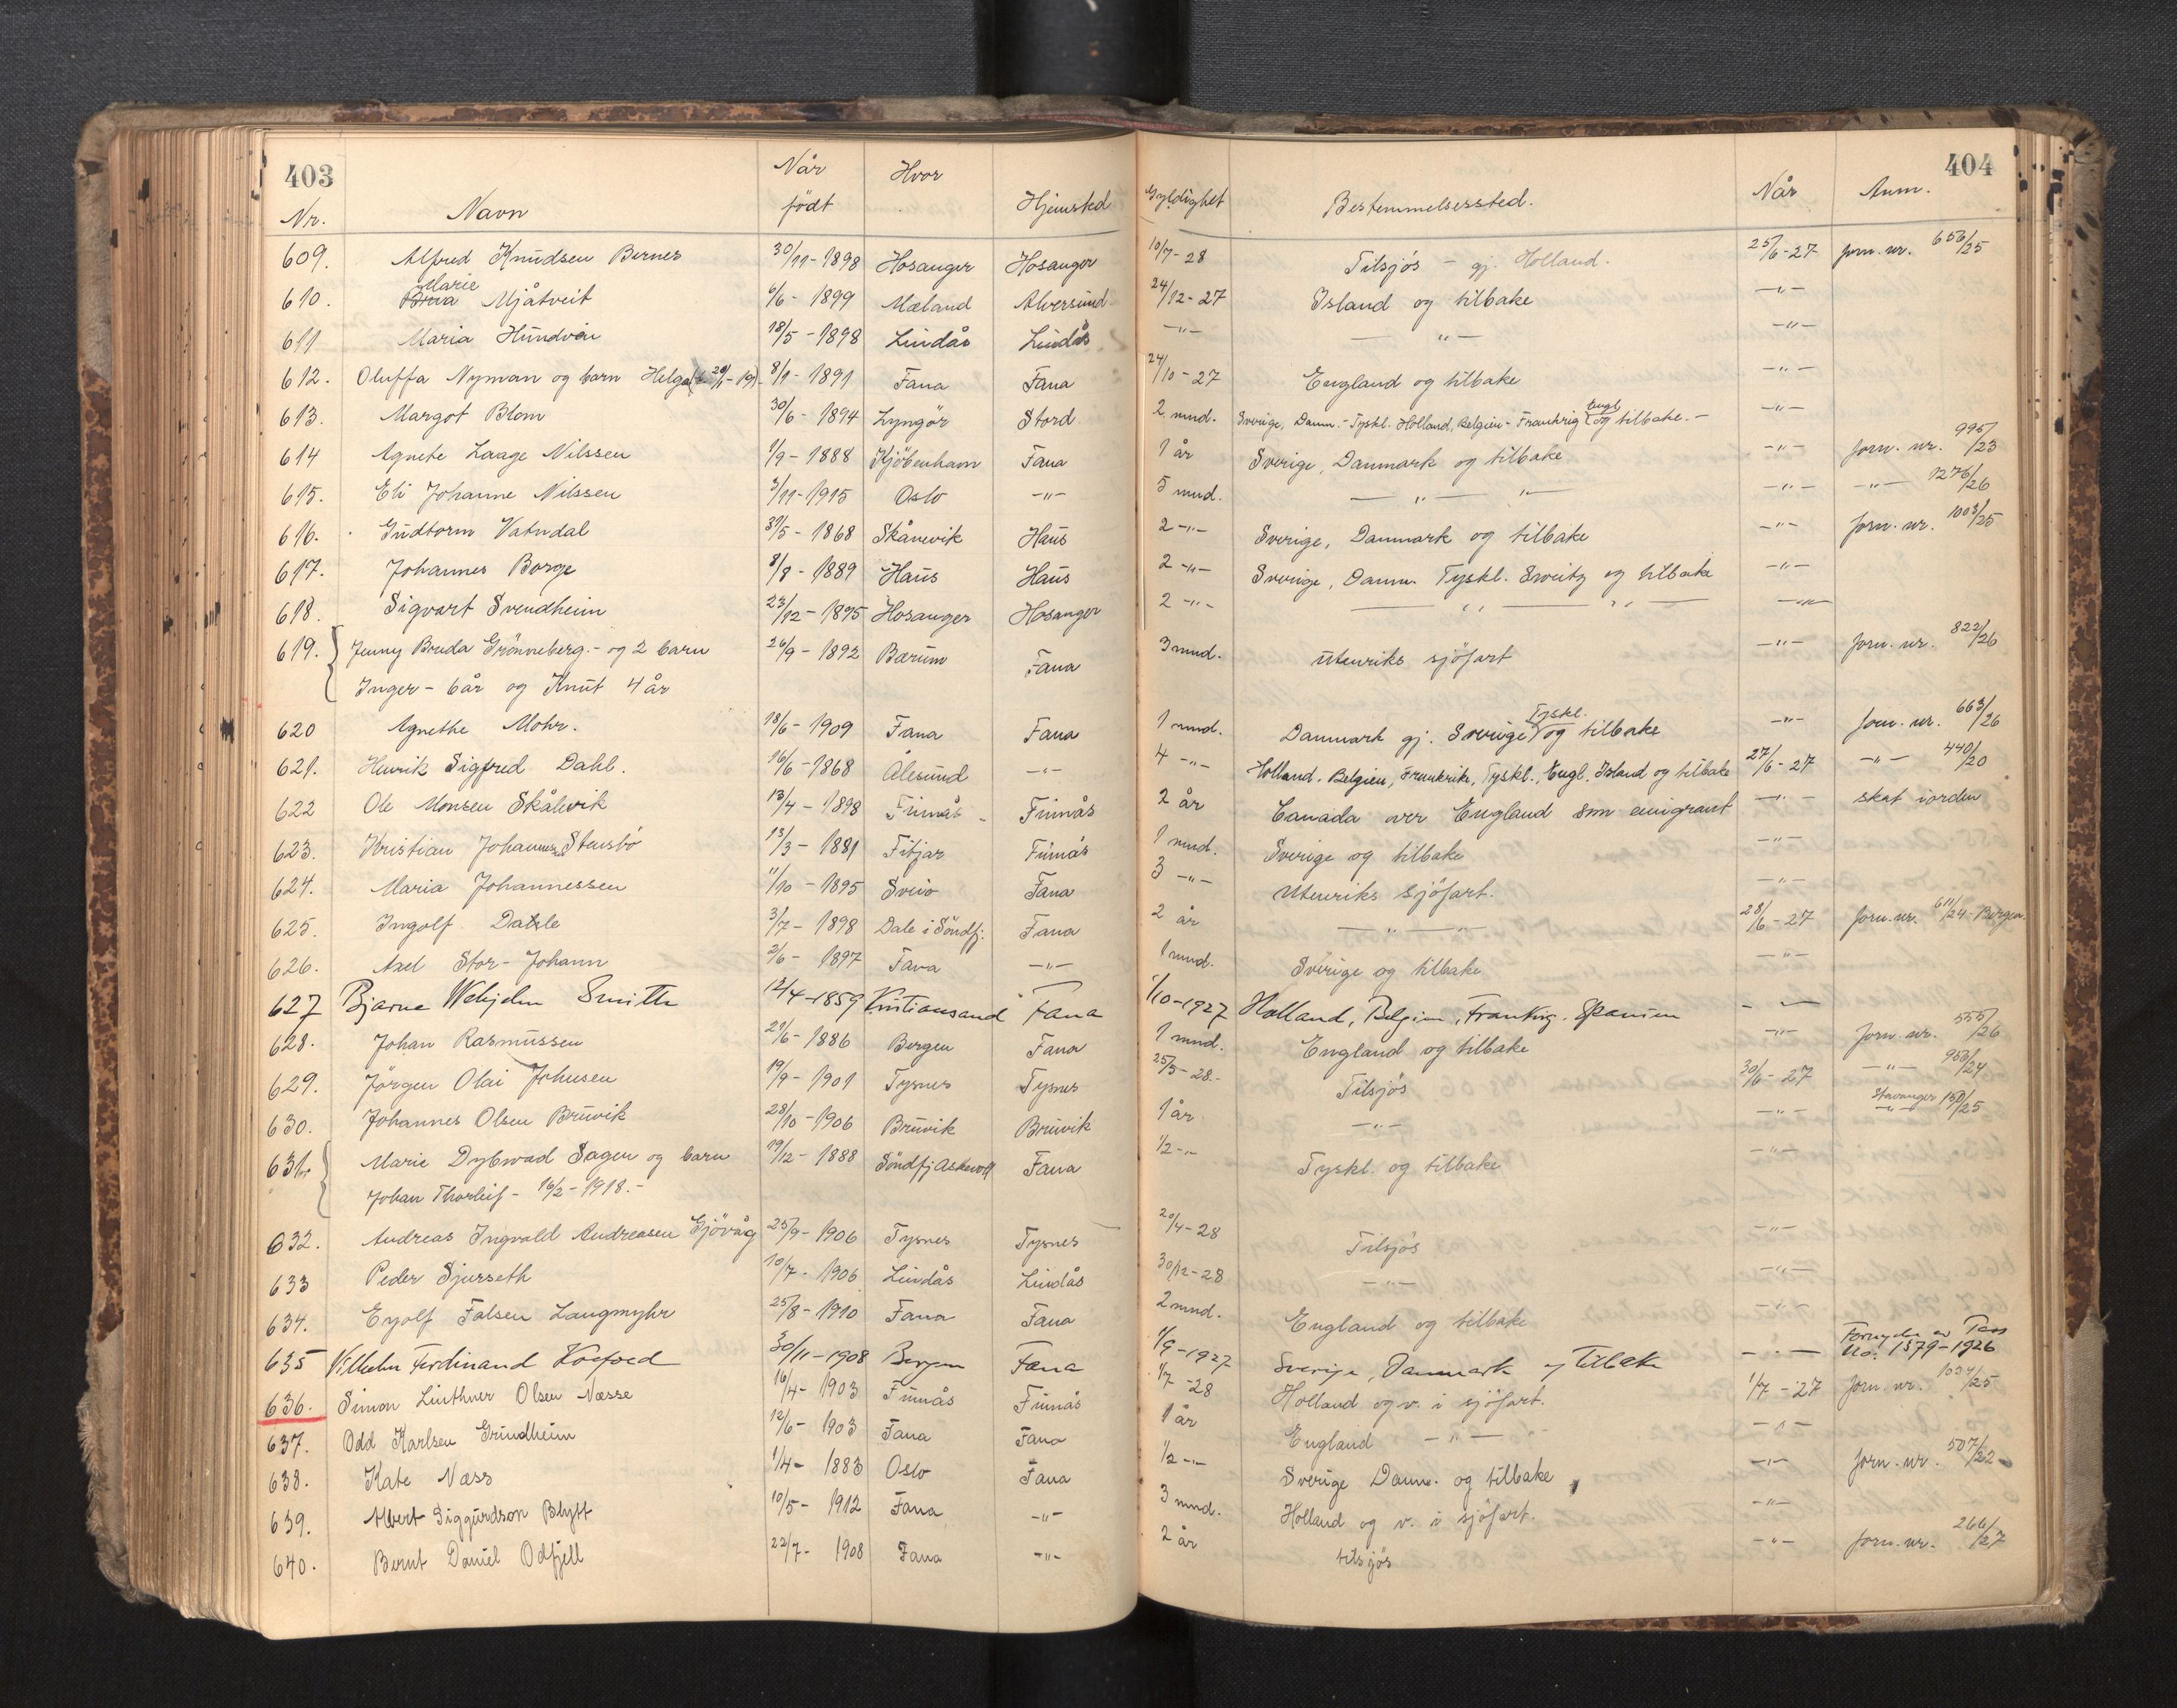 403 404
Når Hvor
Nr. Navn födt Hjemsted Gyldighet Bestemmelsessted. Når Anm.
609. Alfred Knudsen Bernes 30/11-1898 Hosanger Hosanger 10/7-28 Tilsjös - gj. Holland. 25/6-27 forn. nr. 656/25
Marie
610. Brua Mjåtveit 6/6-1899 Mæland Alversund 24/12-27 Island og tilbake -"-
611 Maria Hundvin 18/5-1898 Lindås Lindås -"- -"- -"-
612. Oluffa Nyman og barn Helga 8/1-1891 Fana Fana 24/10-27 England og tilbake -"-
Engl
613. Margot Blom 30/6-1894 Lyngör Stord 2 mnd. Sverige, Danm.-Tyskl. Holland, Belgien-Frankrig og tilbake.- -"-
614 Agnete Laage Nilssen 1/9-1888 Kjöbenhavn Fana 1 år Sverige, Danmark og tilbake -"- forn. nr. 995/23
615. Eli Johanne Nilssen 3/11-1915 Oslo -"- 5 mnd. -"- "- -"- -"- 1276/26
616. Gudtorm Vatndal 31/5-1868 Skånevik Haus 2-"- Sverige, Danmark og tilbake -"- forn. nr. 1003/25
617. Johannes Borge 8/8-1889 Haus Haus 2-"- Sverige, Danm. Tyskl. Sveitz og tilbake -"-
618. Sigvart Svendheim 23/12-1895 Hosanger Hosanger 2-"- -"- -"- -"-
619. Jenny Breda Grönneberg.- og 2 barn 26/9-1892 Bærum Fana 3 mnd. Utenriks sjöfart -"- forn. nr. 822/26
Inger-6 år og Knut 4 år
Tyskl.
620 Agnethe Mohr. 18/6-1909 Fana Fana 1 mnd. Danmark gj. Sverige og tilbake -"- forn. nr. 663/26
621. Henrik Sigfred Dahl. 16/6-1868 Ålesund -"- 4-"- Holland, Belgien, Frankrike, Tyskl., Engl. Island og tilbake 27/6-27 -"- 440/20
622 Ole Monsen Skålevik 13/4-1898 Fusnås Fusnås 2 år Canada over England som emigrant -"- skat iorden
623. Kristian Johannes Stensbö 13/3-1881 Fitjar Fusnås 1 mnd. Sverige og tilbake -"-
624. Maria Johannessen 11/10-1895 Sveio Fana 3-"- Utenriks sjöfart. -"-
625. Ingolf Dahle 3/7-1898 Dale i Söndfj. Fana 2 år -"- "- 28/6-27 forn. nr. 611/24-Bergen
626. Axel Stor-Johann 2/6-1897 Fana -"- 1 mnd. Sverige og tilbake -"-
627 Bjarne Wehjelm Smith 12/4-1859 Kristiansand Fana 1/10-1927 Holland, Belgien, Frankrig. Spanien -"-
628. Johan Rasmussen 21/6-1886 Bergen Fana 1 mnd. England og tilbake -"- forn. nr. 555/26
629. Jörgen Olai Johnsen 19/9-1901 Tysnes Tysnes 25/5-28.- Tilsjös 30/6-27 -"- 953/24
630. Johannes Olsen Bruvik 28/10-1906 Bruvik Bruvik 1 år -"- -"- Stavanger 150/25
631. Marie Dybwad Sagen og barn 19/12-1888 Söndfj Askevoll Fana 1/2-"- Tyskl. og tilbake -"-
Johan Thorleif-16/2-1918.-
632. Andreas Ingvald Andreasen Gjövåg 25/9-1906 Tysnes Tysnes 20/4-28 Tilsjös -"-
633 Peder Sjurseth 10/7-1906 Lindås Lindås 30/12-28 -"- -"-
634. Eyolf Falsen Langmyhr 25/8-1910 Fana Fana 2 mnd. England og tilbake -"-
635 Vilhelm Ferdinand Koefoed 30/11-1908 Bergen Fana 1/9-1927 Sverige, Danmark og Tilbake -"- Fornyelse av Pass No. 1579-1926
636. Simon Linthner Olsen Næsse 16/4-1903 Fusnås Fusnås 1/7-28 Holland og v. i sjöfart. 1/7-27 forn. nr. 1034/25
637. Odd Karlsen Grindheim 12/6-1903 Fana Fana 1 år England -"- -"-
638. Kate Næss 1/4-1883 Oslo Fana 1/2-"- Sverige Danm. og tilbake -"- forn. nr. 507/22
639. Albert Siggurdson Blytt 10/5-1912 Fana -"- 3 mnd. Holland og v. i sjöfart. -"-
640. Bernt Daniel Odfjell 22/7-1908 Fana -"- 2 år tilsjös -"- forn. nr. 266/27